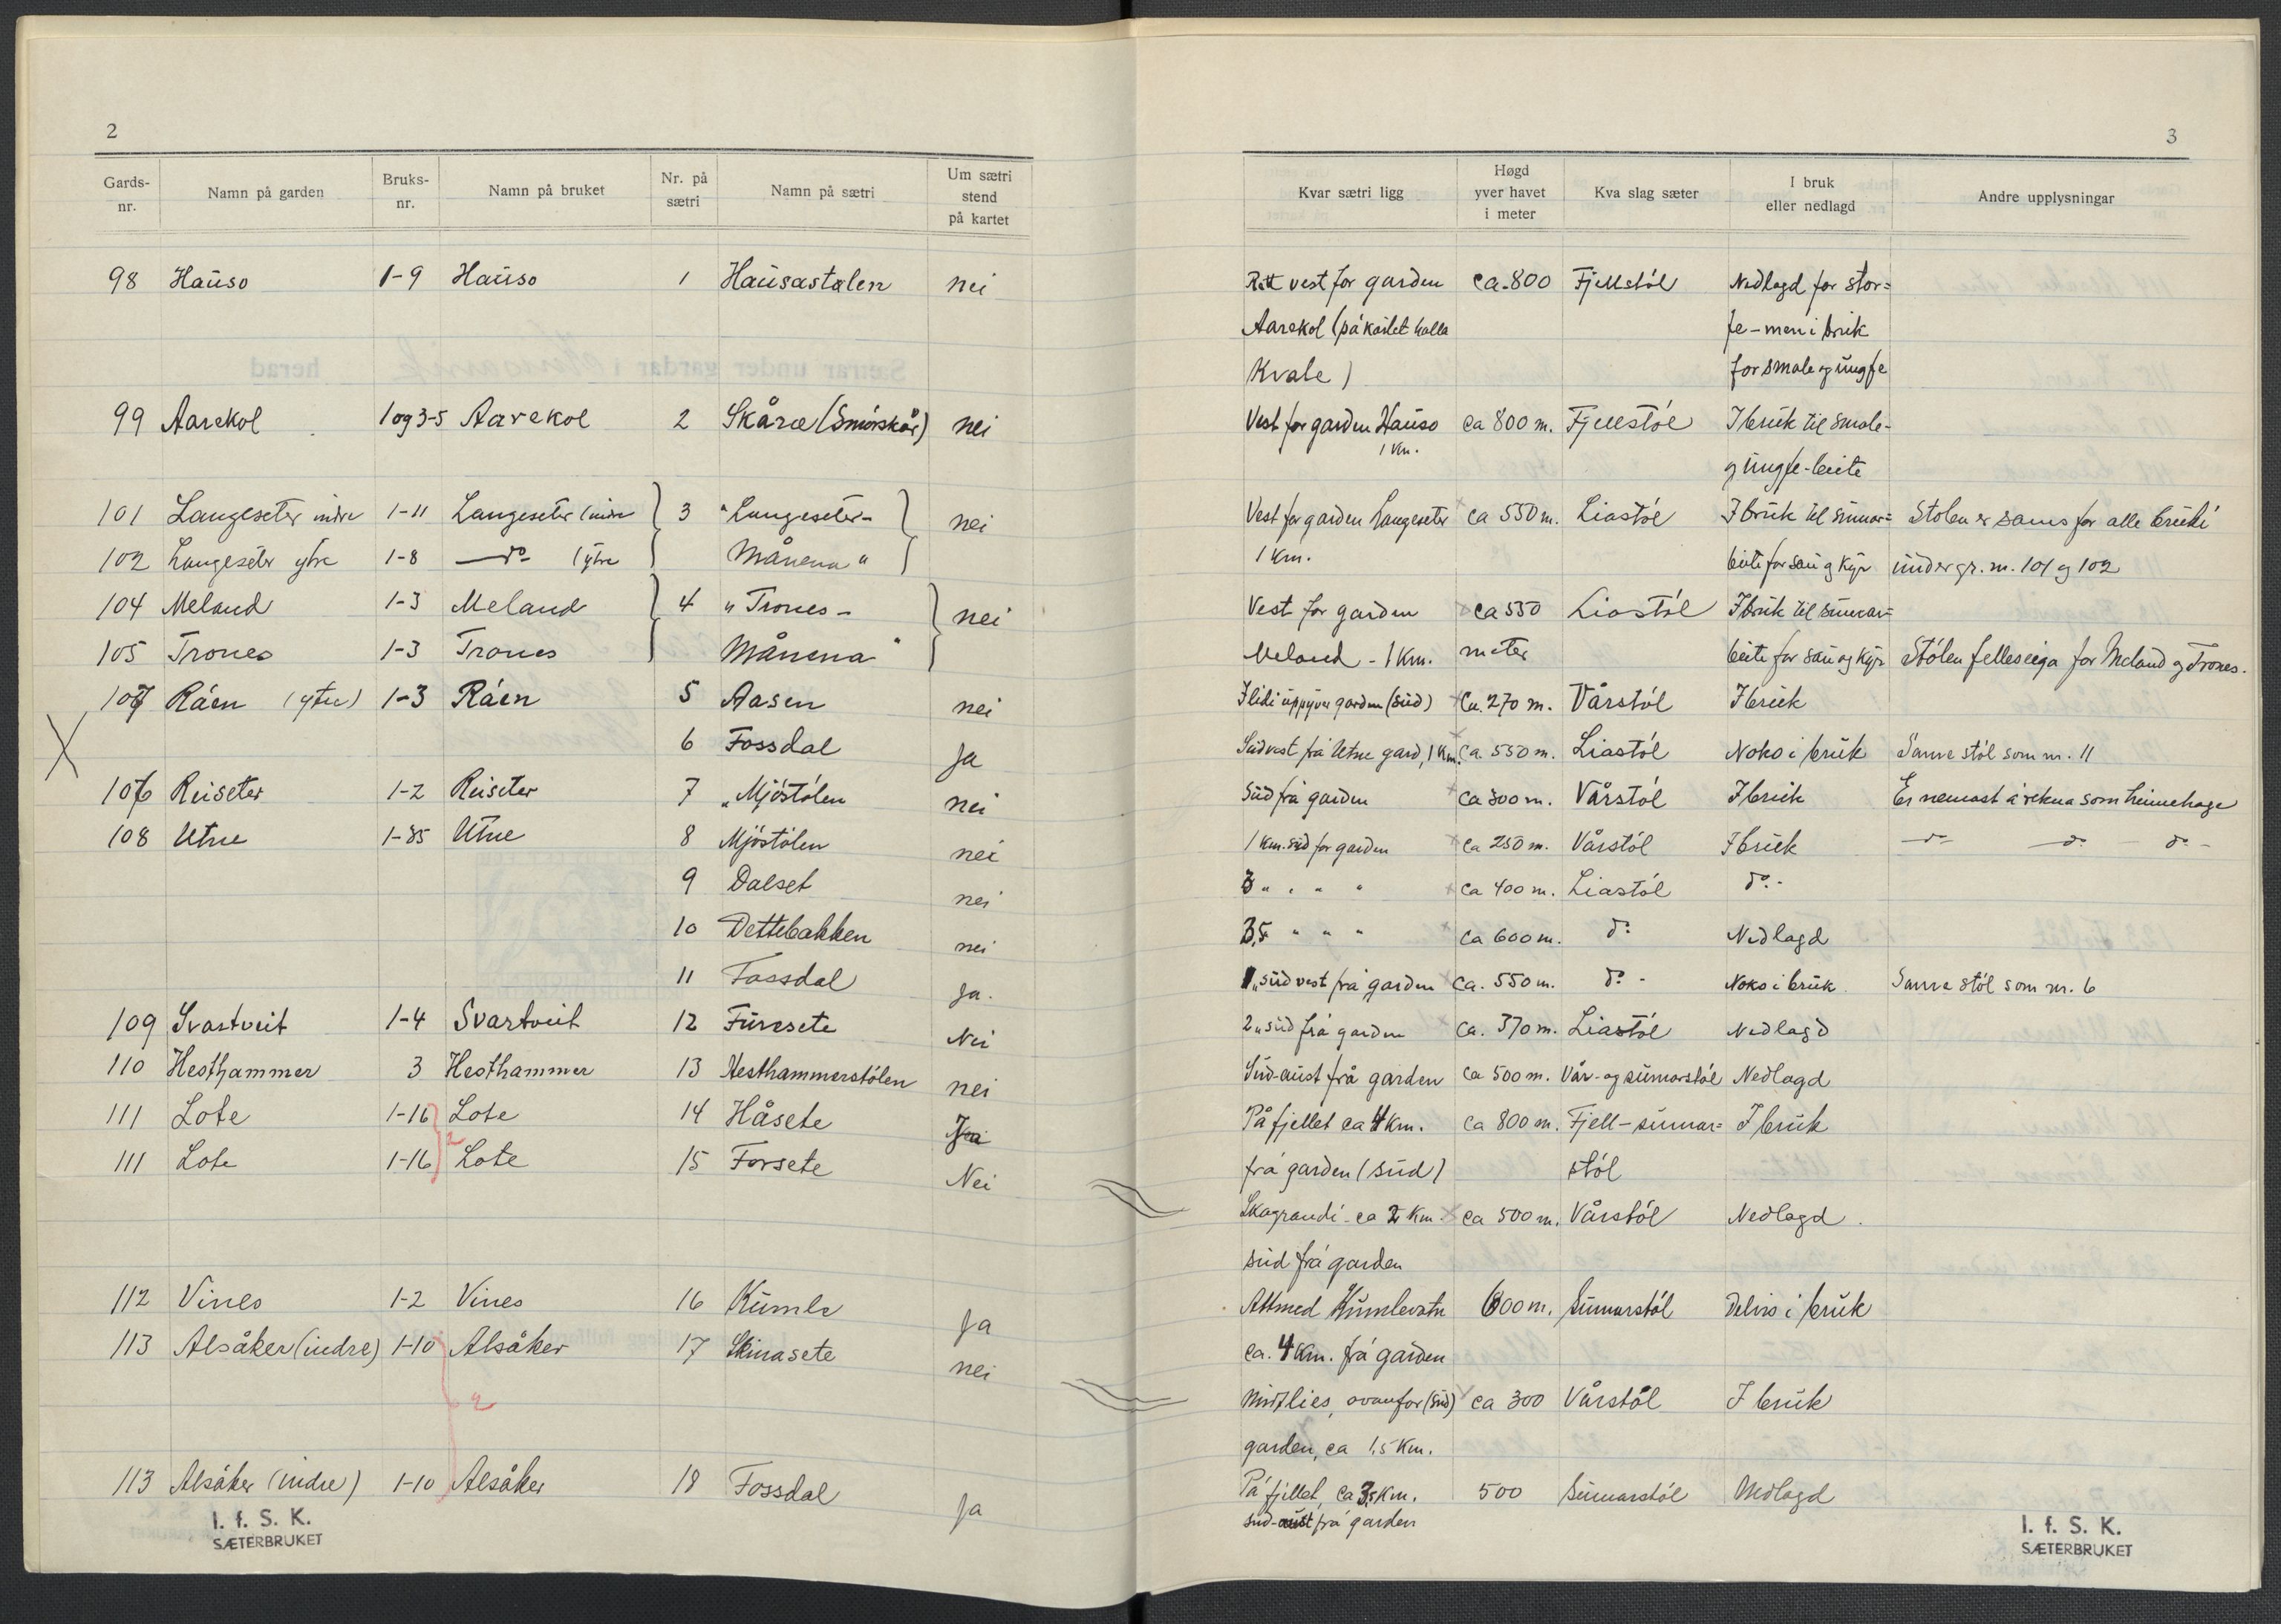 2
Gards-nr. Namn på garden Bruks-nr. Namn på bruket Nr. på sætri Namn på sætri Um sætri stend på kartet
98 Hauso 1-9 Hauso 1 Hausastølen nei
99 Aarekol 1 og 3-5 Aarekol 2 Skåræ (Smørskår) nei
101 Langeseter indre 1-11 Langeseter (indre 3 "Langeseter- nei
102 Langeseter ytre 1-8 — do - (ytre Månena"
104 Meland 1-3 Meland 4 "Trones- nei
105 Trones 1-3 Trones Månena"
107 Råen (ytre) 1-3 Råen 5 Aasen nei
6 Fossdal Ja
106 Reiseter 1-2 Reiseter 7 "Mjøstølen nei
108 Utne 1-85 Utne 8 Mjøstølen nei
9 Dalset nei
10 Dettebakken nei
11 Fossdal Ja.
109 Svartveit 1-4 Svartveit 12 Furesete Nei
110 Hesthammer 3 Hesthammer 13 Hesthammerstølen nei
111 Lote 1-16 Lote 14 Håsete Ja
2
111 Lote 1-16 Lote 15 Forsete Nei
112 Vines 1-2 Vines 16 Kumle Ja
113 Alsåker (indre) 1-10 Alsåker 17 Skinasete nei
2
113 Alsåker (indre) 1-10 Alsåker 18 Fossdal Ja
I. f. S. K.
SÆTERBRUKET
3
Kvar sætri ligg Høgd yver havet i meter Kva slag sæter I bruk eller nedlagd Andre upplysningar
Rett vest for garden ca. 800 Fjellstøl Nedlagd for stor=
Aarekol (på kartet kalla fe - men i bruk
Kvale) for smale og ungfe
Vest for garden Hauso ca 800 m. Fjellstøl I bruk til smale-
1 km.
og ungfe-beite
Vest for garden Langeseter ca 550 m. Liastøl I bruk til sumar= Stølen er sams for alle bruki
1 km. beite for sau og kyr under gr. nr. 101 og 102
Vest for garden ca 550 Liastøl I bruk til sumar=
Meland - 1 km. meter beite for sau og kyr Stølen felleseiga for Meland og Trones.
I lidi uppyver garden (sud) Ca. 270 m. Vårstøl I bruk
Sudvest frå Utne gard, 1 km. Ca. 550 m. Liastøl Noko i bruk Same støl som nr. 11
Sud frå garden ca 300 m. Vårstøl I bruk Er nemast å rekna som heimehage
1 km. sud for garden ca 250 m. Vårstøl I bruk - do - - do - do -
3 " " " " ca 400 m. Liastøl do. -
3,5 " " " ca 600 m. do Nedlagd
1 " sudvest frå garden ca. 550 m. do - Noko i bruk Same støl som nr. 6
2 " sud frå garden ca. 370 m. Liastøl Nedlagd
Sud-aust frå garden ca 500 m. Vår- og sumarstøl Nedlagd
På fjellet ca 4 km. ca 800 m. Fjell-sumar= I bruk
frå garden (sud) støl
Skograndi - ca 2 km ca 500 m. Vårstøl Nedlagd.
sud frå garden
Attmed Kumlevatn 600 m. Sumarstøl Delvis i bruk
ca. 4 km. frå garden
Midtlies, ovanfor (sud) ca 300 Vårstøl I bruk
garden, ca 1,5 km.
På fjellet, ca 3,5 km. 500 Sumarstøl Nedlagd
sud-aust frå garden
I. f. S. K.
SÆTERBRUKET